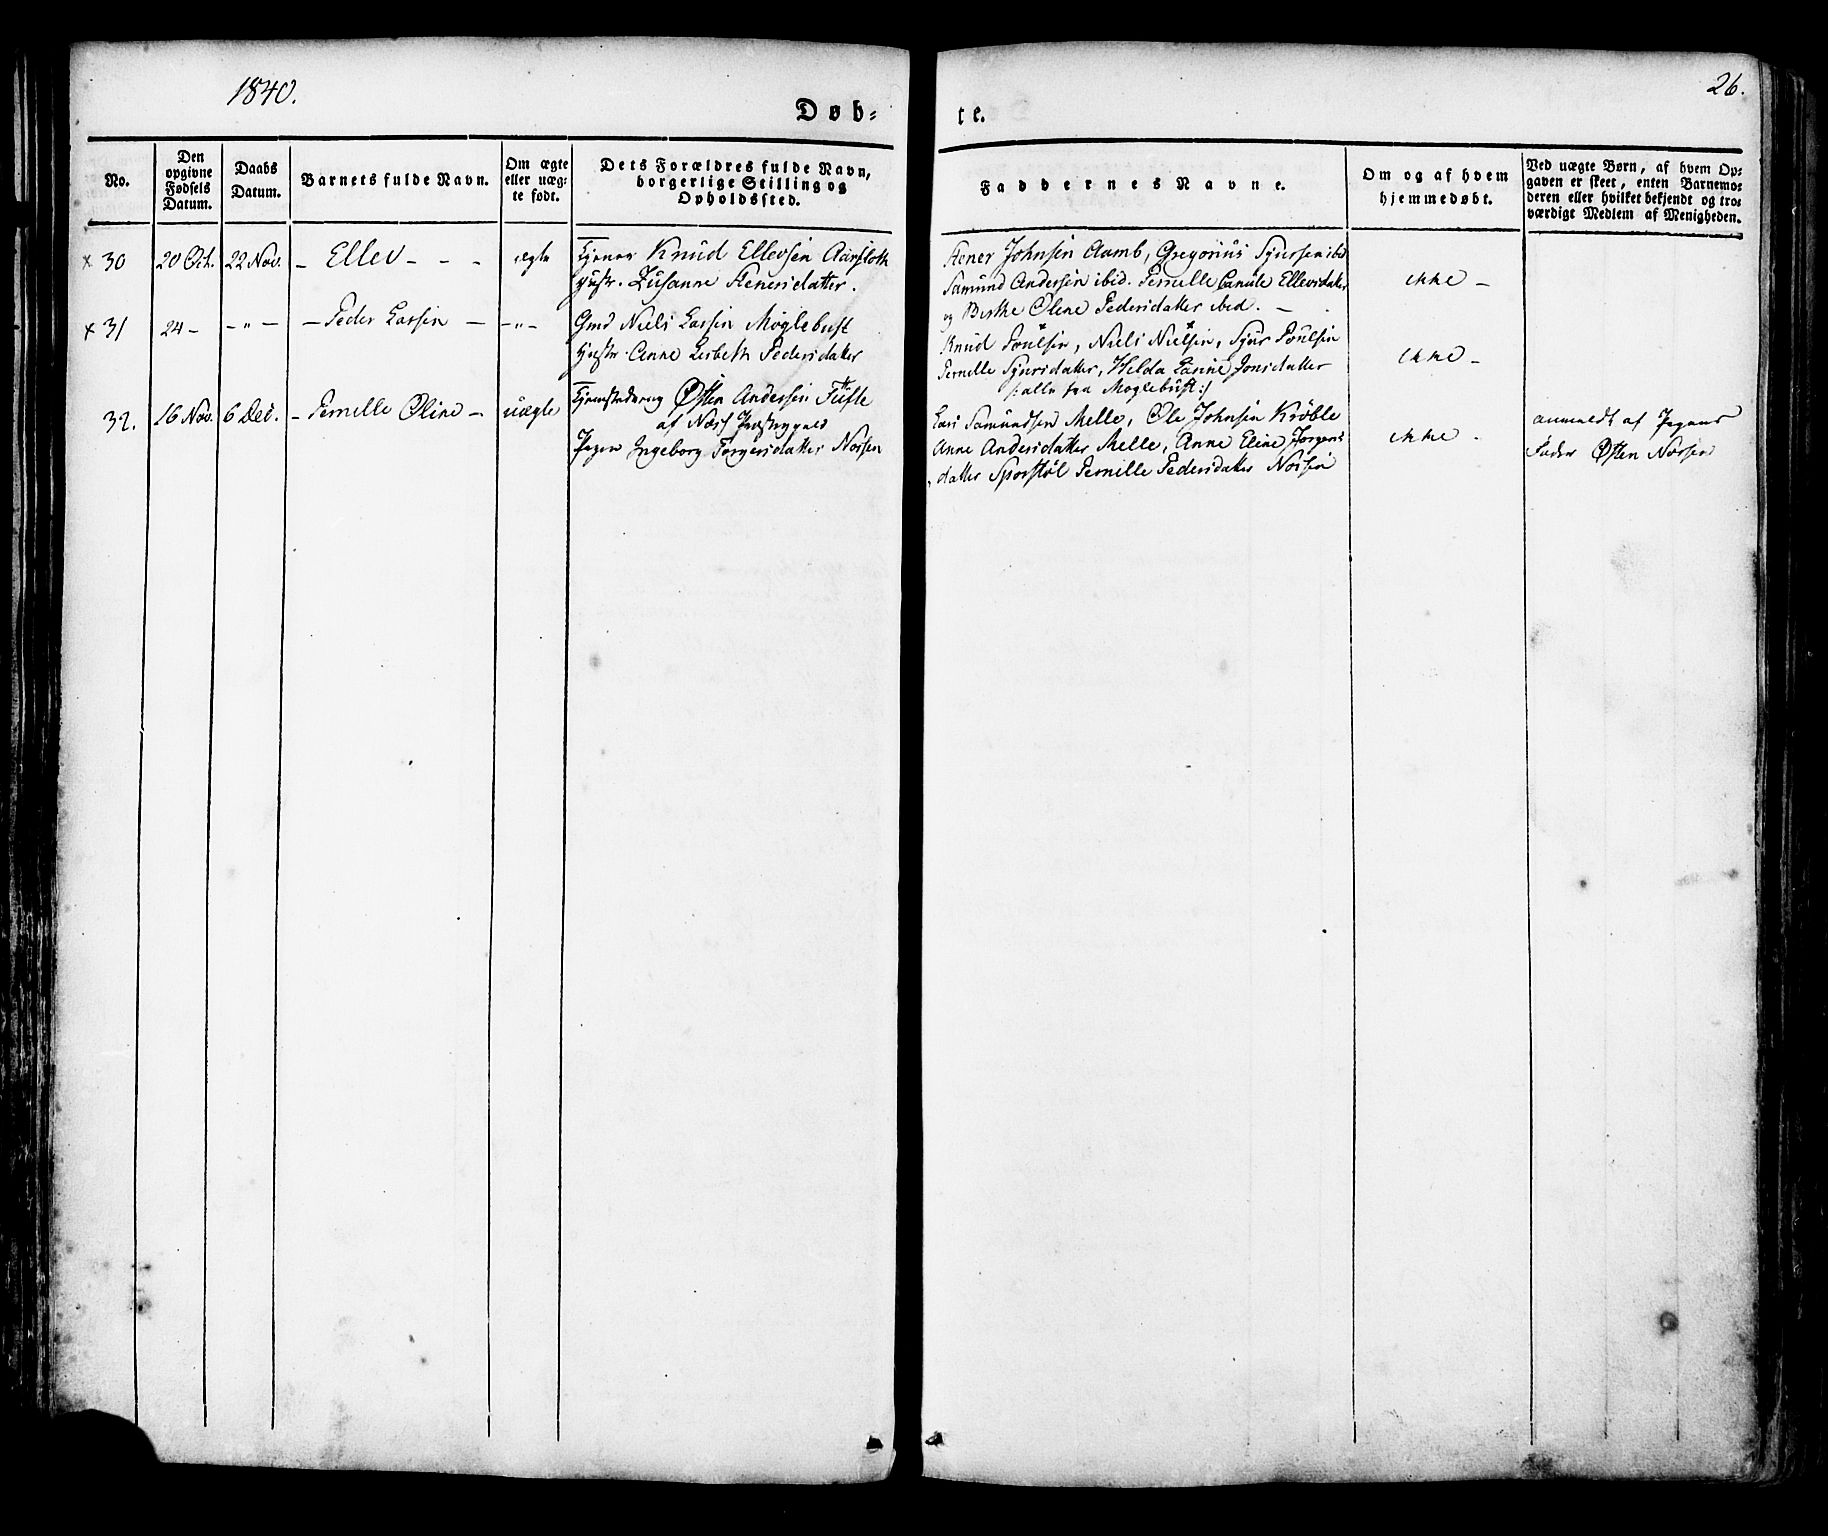 1840.
Døb-
te.
26.
No.
Den
opgivne
Fødsels
Datum.
Daabs
Datum.
Barnets fulde Navn.
Om ægte
eller uæg-
te født.
Dets Forældres fulde Navn,
borgerlige Stilling og
Opholdssted.
Faddernes Navne.
Om og af hvem
hjemmedøbt.
Ved uægte Børn, af hvem Op-
gaven er skeet, enten Barnemo-
deren eller hvilket bekjendt og tro-
værdigt Medlem af Menigheden.
x 30
20 Oct.
22 Nov.
- Ellev - - -
ægte
Knud Ellevsen
Hustr. Susanne Stenersdatter.
Stener Johnsen Aamb, Gregorius Sjursen ibid
Samund Andersen ibid. Pernille Ellevsdatter
og Berthe Oline Pedersdatter ibid. -
ikke -
x 31
24 -
- " -
- Peder Larsen -
- " -
Gmd Niels Larsen Møglebust
Hustr. Anne Lisbeth Pedersdatter
Knud Poulsen, Niels Nielsen, Sjur Poulsen
Pernille Sjursdatter, Helda Larine Jonsdatter
/: alle fra Moglebust :/
ikke -
32.
16 Nov.
6 Dec.
- Pernille Oline -
uægte
Østen Andersen
af
Pigen Ingeborg Torgersdatter
Lars Samundsen Melle, Ole Johnsen Krøble
Anne Andersdatter Melle, Anne Eline Jørgens
datter Sporstøl Pernille Pedersdatter
ikke -
anmeldt af Pigens
Fader Østen